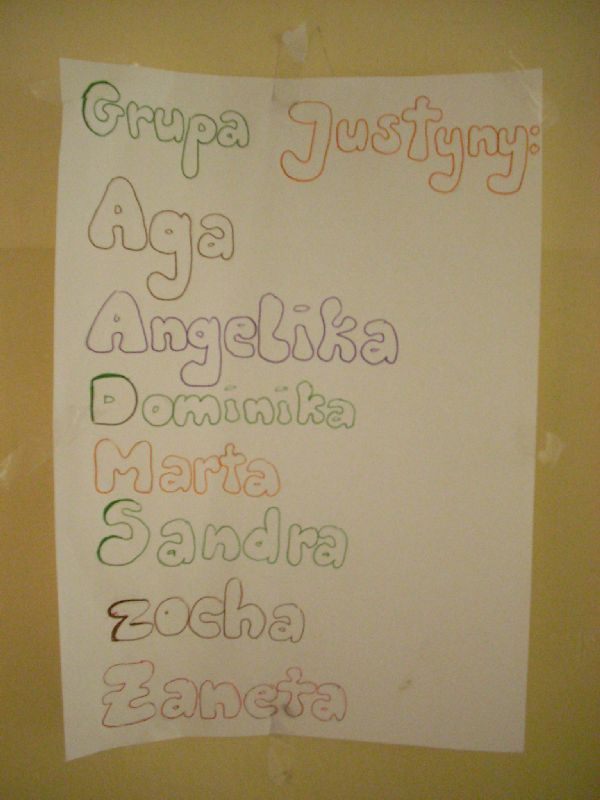 Grupa Justyny:
Aga
Angelika
Dominika
Marta
Sandra
zocha
Zaneta